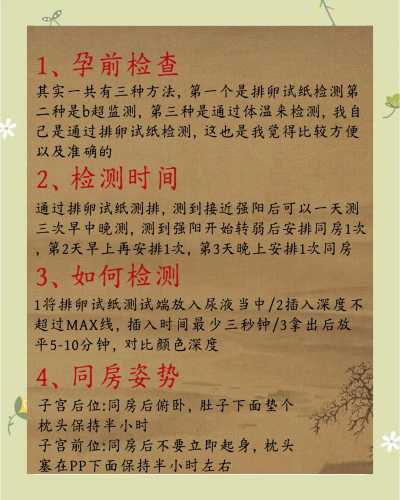 1、孕前检查
其实一共有三种方法，第一个是排卵试纸检测第
二种是b超监测，第三种是通过体温来检测，我自
己是通过排卵试纸检测，这也是我觉得比较方便
以及准确的
2、检测时间
通过排卵试纸测排，测到接近强阳后可以一天测
三次早中晚测，测到强阳开始转弱后安排同房1次
，第2天早上再安排1次，第3天晚上安排1次同房
3、如何检测
1将排卵试纸测试端放入尿液当中/2插入深度不
超过MAX线，插入时间最少三秒钟/3拿出后放
平5-10分钟，对比颜色深度
4、同房姿势
子宫后位:同房后俯卧，肚子下面垫个
枕头保持半小时
子宫前位:同房后不要立即起身，枕头
塞在PP下面保持半小时左右